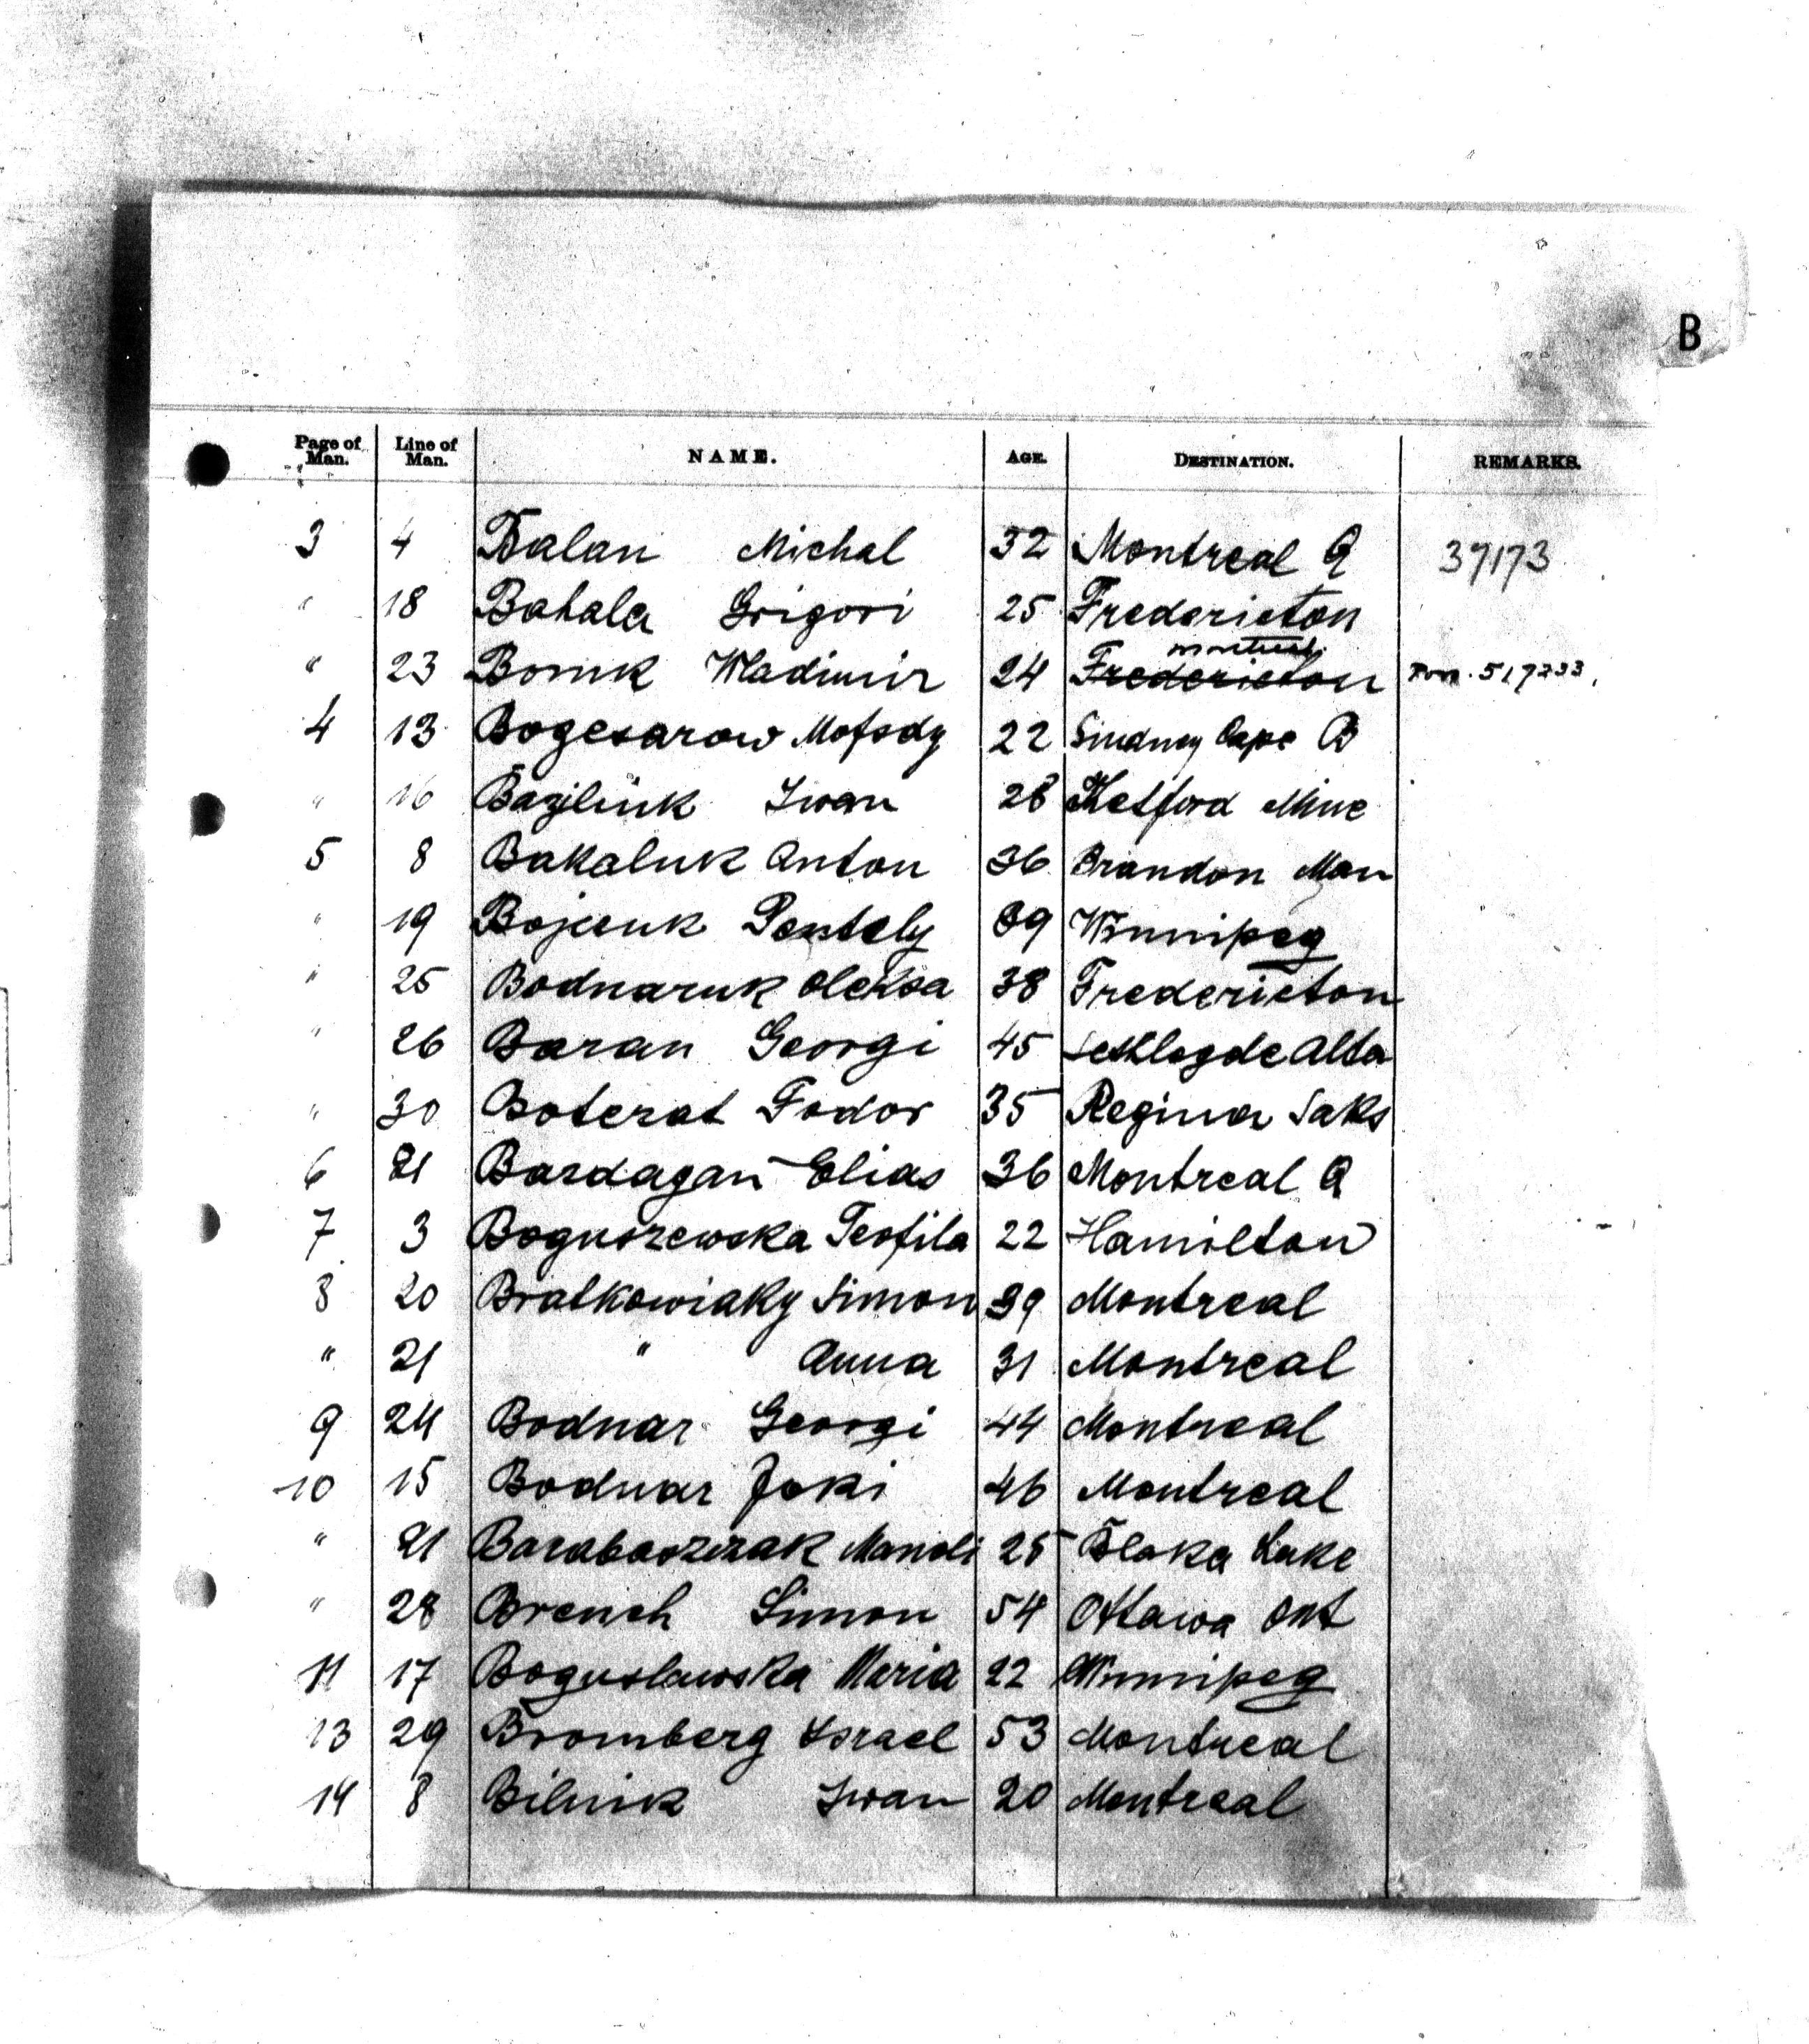 B
Page of Man. Line of Man. NAME. AGE. DESTINATION. REMARKS.
3 4 Balan Michal 32 Montreal Q 37173
" 18 Bahala Grigori 25 Fredericton
Montreal
" 23 Wladimir 24 Fredericton
4 13 Bogesarow 22 Sindney Cape B
" 16 Baziliuk Iwan 28 Thetford Mine
5 8 Bakaluk Anton 36 Brandon Man
" 19 Bojcuk Pentely 39 Winnipeg
" 25 Bodnaruk Oleksa 38 Fredericton
" 26 Baran Georgi 45 Alta
" 30 Boterat Fodor 35 Regina Saks
6 21 Bardagan Elias 36 Montreal Q
7 3 Boguszewska Teofila 22 Hamilton
8 20 Bratkowiaky Simon 39 Montreal
" 21 " Anna 31 Montreal
9 24 Bodnar Georgi 44 Montreal
10 15 Bodnar Joki 46 Montreal
" 21 Barabaszczak Manoli 25 Blaka Lake
" 28 Brench Simon 54 Ottawa Ont
11 17 Boguslawska Maria 22 Winnipeg
13 29 Bromberg Israel 53 Montreal
14 8 Bilinik Iwan 20 Montreal